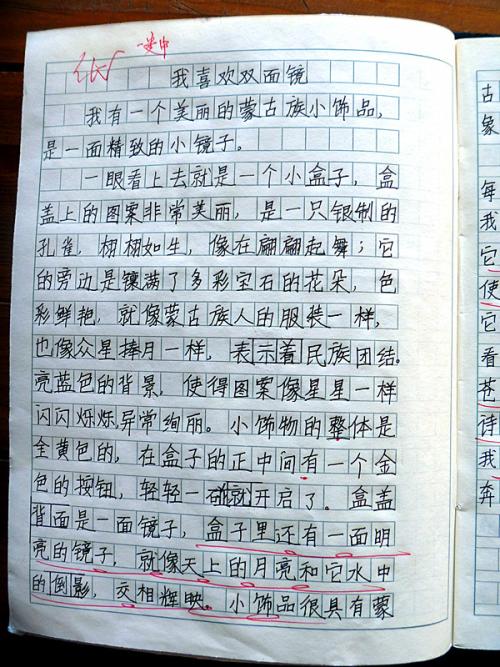 一类中
优
我喜欢双面镜
我有一个美丽的蒙古族小饰品，
是一面精致的小镜子。
一眼看上去就是一个小盒子，盒
盖上的图案非常美丽，是一只银制的
孔雀，栩栩如生，像在翩翩起舞；它
的旁边是镶满了多彩宝石的花朵，色
彩鲜艳，就像蒙古族人的服装一样，
也像众星捧月一样，表示着民族团结。
亮蓝色的背景，使得图案像星星一样
闪闪烁烁，异常绚丽。小饰物的整体是
金黄色的，在盒子的正中间有一个金
色的按钮，轻轻一碰就开启了。盒盖
背面是一面镜子，盒子里还有一面明
亮的镜子，就像天上的月亮和它水中
的倒影，交相辉映。小饰品很具有蒙
古
象
每
我
它
使
它
看
苍
诗
我
奔